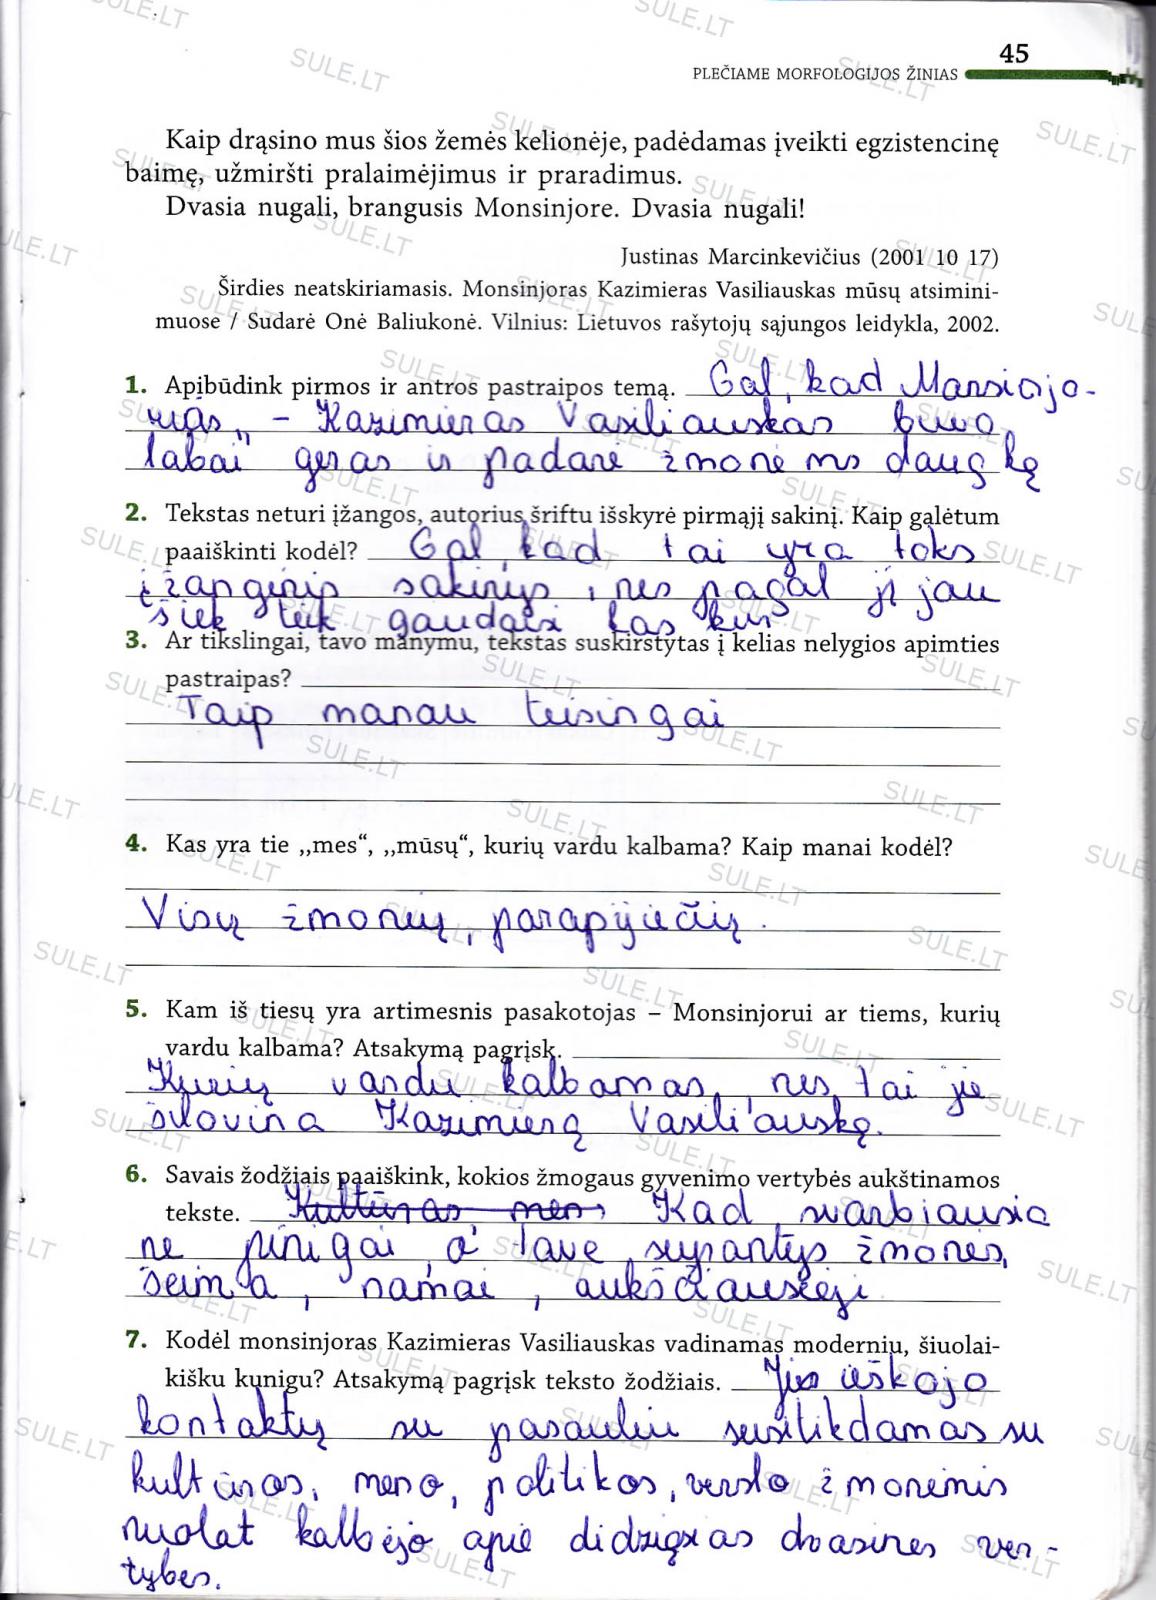 45
PLEČIAME MORFOLOGIJOS ŽINIAS
Kaip drąsino mus šios žemės kelionėje, padėdamas įveikti egzistencinę
baimę, užmiršti pralaimėjimus ir praradimus.
Dvasia nugali, brangusis Monsinjore. Dvasia nugali!
Justinas Marcinkevičius (2001 10 17)
Širdies neatskiriamasis. Monsinjoras Kazimieras Vasiliauskas mūsų atsimini-
muose / Sudarė Onė Baliukonė. Vilnius: Lietuvos rašytojų sąjungos leidykla, 2002.
1. Apibūdink pirmos ir antros pastraipos temą. Gal, kad
– Kazimieras Vasiliauskas buvo
labai geras ir padarė žmonėms daug ką
2. Tekstas neturi įžangos, autorius šriftu išskyrė pirmąjį sakinį. Kaip galėtum
paaiškinti kodėl? Gal, kad tai yra toks
įžanginis sakinys, nes pagal jį jau
šiek tiek gaudaisi kas kur
3. Ar tikslingai, tavo manymu, tekstas suskirstytas į kelias nelygios apimties
pastraipas?
Taip manau teisingai
4. Kas yra tie „mes“, „mūsų“, kurių vardu kalbama? Kaip manai kodėl?
Visų žmonių, parapijiečių.
5. Kam iš tiesų yra artimesnis pasakotojas – Monsinjorui ar tiems, kurių
vardu kalbama? Atsakymą pagrįsk.
Kurių vardu kalbamas, nes tai jie
šlovina Kazimierą Vasiliauską.
6. Savais žodžiais paaiškink, kokios žmogaus gyvenimo vertybės aukštinamos
tekste. Kultūros meno, Kad svarbiausia
ne pinigai, o tave suprantys žmonės,
šeima, namai, aukščiausieji
7. Kodėl monsinjoras Kazimieras Vasiliauskas vadinamas moderniu, šiuolai-
kišku kunigu? Atsakymą pagrįsk teksto žodžiais. Jis ieškojo
kontaktų su pasauliu susitikdamas su
kultūros, meno, politikos, verslo žmonėmis
nuolat kalbėjo apie didžiąsias dvasines ver-
tybes.